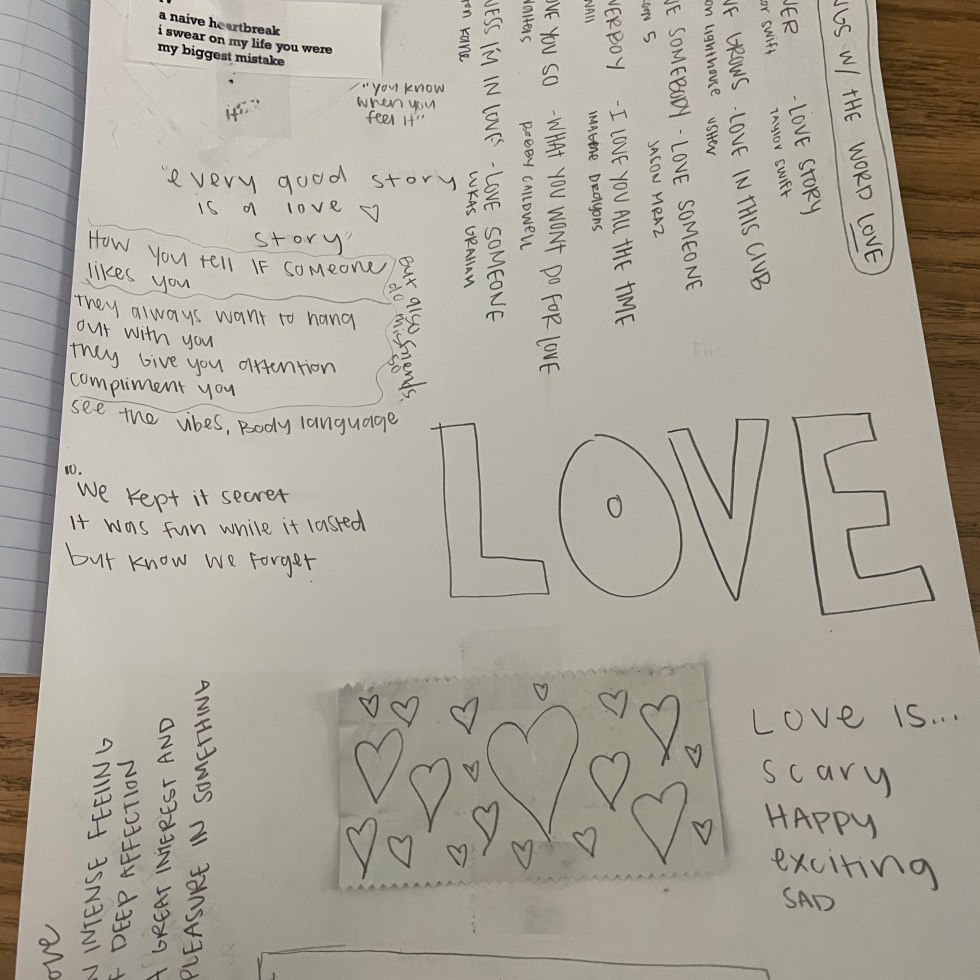 a naive heartbreak
i swear on my life you were
my biggest mistake
"you know
when you
feel it"
"every good story
is a love
story"
How you tell IF someone
likes you
they always want to hang
out with you
they give you attention
compliment you
see the vibes, Body language
but also
do friends
so
10.
We kept it secret
It was fun while it lasted
but know we forget
W/ THE WORD LOVE
- LOVE STORY
TAYLOR SWIFT
GROWS - LOVE IN THIS CLUB
lighthouse USHER
SOMEBODY - LOVE SOMEONE
5 JASON MRAZ
- I LOVE YOU ALL THE TIME
YOU SO - WHAT YOU WONT DO FOR LOVE
BOBBY CALDWELL
I'M IN LOVE - LOVE SOMEONE
LUKAS GRAHAM
LOVE
LOVE IS...
scary
HAPPY
exciting
SAD
INTENSE FEELING
DEEP AFFECTION
A GREAT INTEREST AND
PLEASURE IN SOMETHING